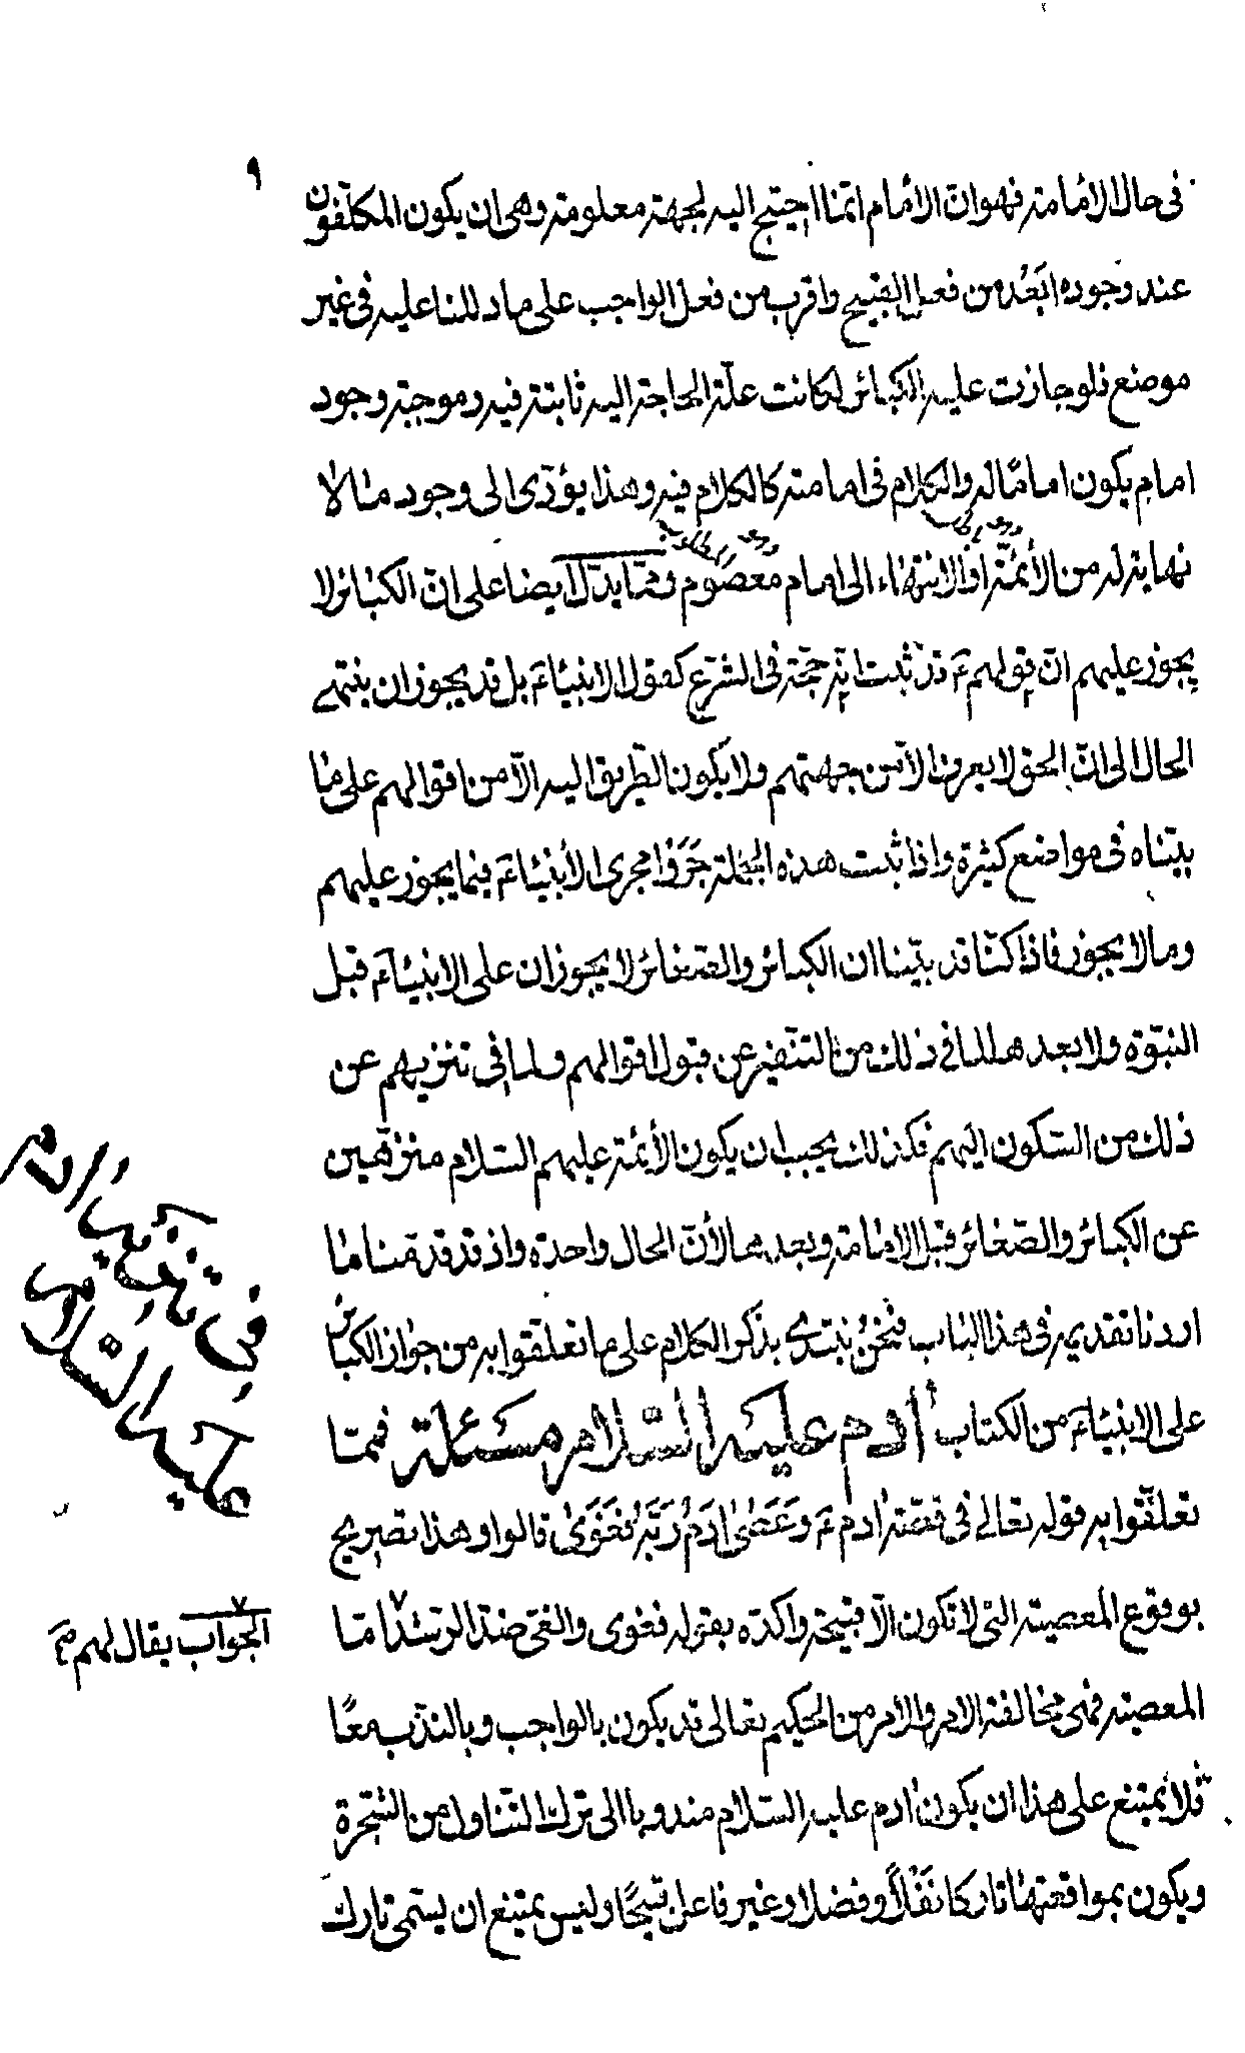 ٩
فى حال الامامة فهو ان الامام انما احتيج اليه لجهة معلومة وهى ان يكون المكلفون
عند وجوده ابعد من فعل القبيح واقرب من فعل الواجب على ما دللنا عليه فى غير
موضع فلو جازت عليه الكبائر لكانت علة الحاجة اليه ثابتة فيه وموجبة وجود
امام يكون اماما له والكلام فى امامته كالكلام فيه وهذا يؤدى الى وجود ما لا
نهاية له من الأئمة او الانتهاء الى امام معصوم ومما يدل ايضا على ان الكبائر لا
يجوز عليهم ان قولهم ع قد ثبت انه حجة فى الشرع كقول الانبياء ع بل قد يجوز ان ينتهى
الحال الى ان الحق لا يعرف الا من جهتهم ولا يكون الطريق اليه الا من اقوالهم على ما
بيناه فى مواضع كثيرة واذا ثبت هذه الجملة جروا مجرى الأنبياء ع فيما يجوز عليهم
وما لا يجوز فاذا كنا قد بينا ان الكبائر والصغائر لا يجوزان على الانبياء ع قبل
النبوة ولا بعدها لما فى ذلك من التنفير عن قبول اقوالهم ولما فى تنزيههم عن
ذلك من السكون اليهم فكذلك يجب ان يكون الأئمة عليهم السلام منزهين
عن الكبائر والصغائر قبل الامامة وبعدها لأن الحال واحدة واذ قد قدمنا ما
اردنا تقديمه فى هذا الباب فنحن نبتدئ بذكر الكلام على ما تعلقوا به من جواز الكبائر
على الانبياء ع من الكتاب آدم عليه السلام مسئلة فمما
تعلقوا به قوله تعالى فى قصة آدم ع وَعَصىٰ آدَمُ رَبَّهُ فَغَوىٰ قالوا وهذا تصريح
بوقوع المعصية التى لا تكون الا قبيحة واكده بقوله فغوى والغى ضد الرشد اما
المعصية فهى مخالفة الامر والامر من الحكيم تعالى قد يكون بالواجب وبالندب معًا
فلا يمتنع على هذا ان يكون آدم عليه السلام مندوبا الى ترك التناول من الشجرة
ويكون بمواقعتها تاركا نفلاً وفضلا وغير فاعل قبيحًا وليس يمتنع ان يسمى تارك
فى تنزيه آدم
عليه السلام
الجواب يقال لهم